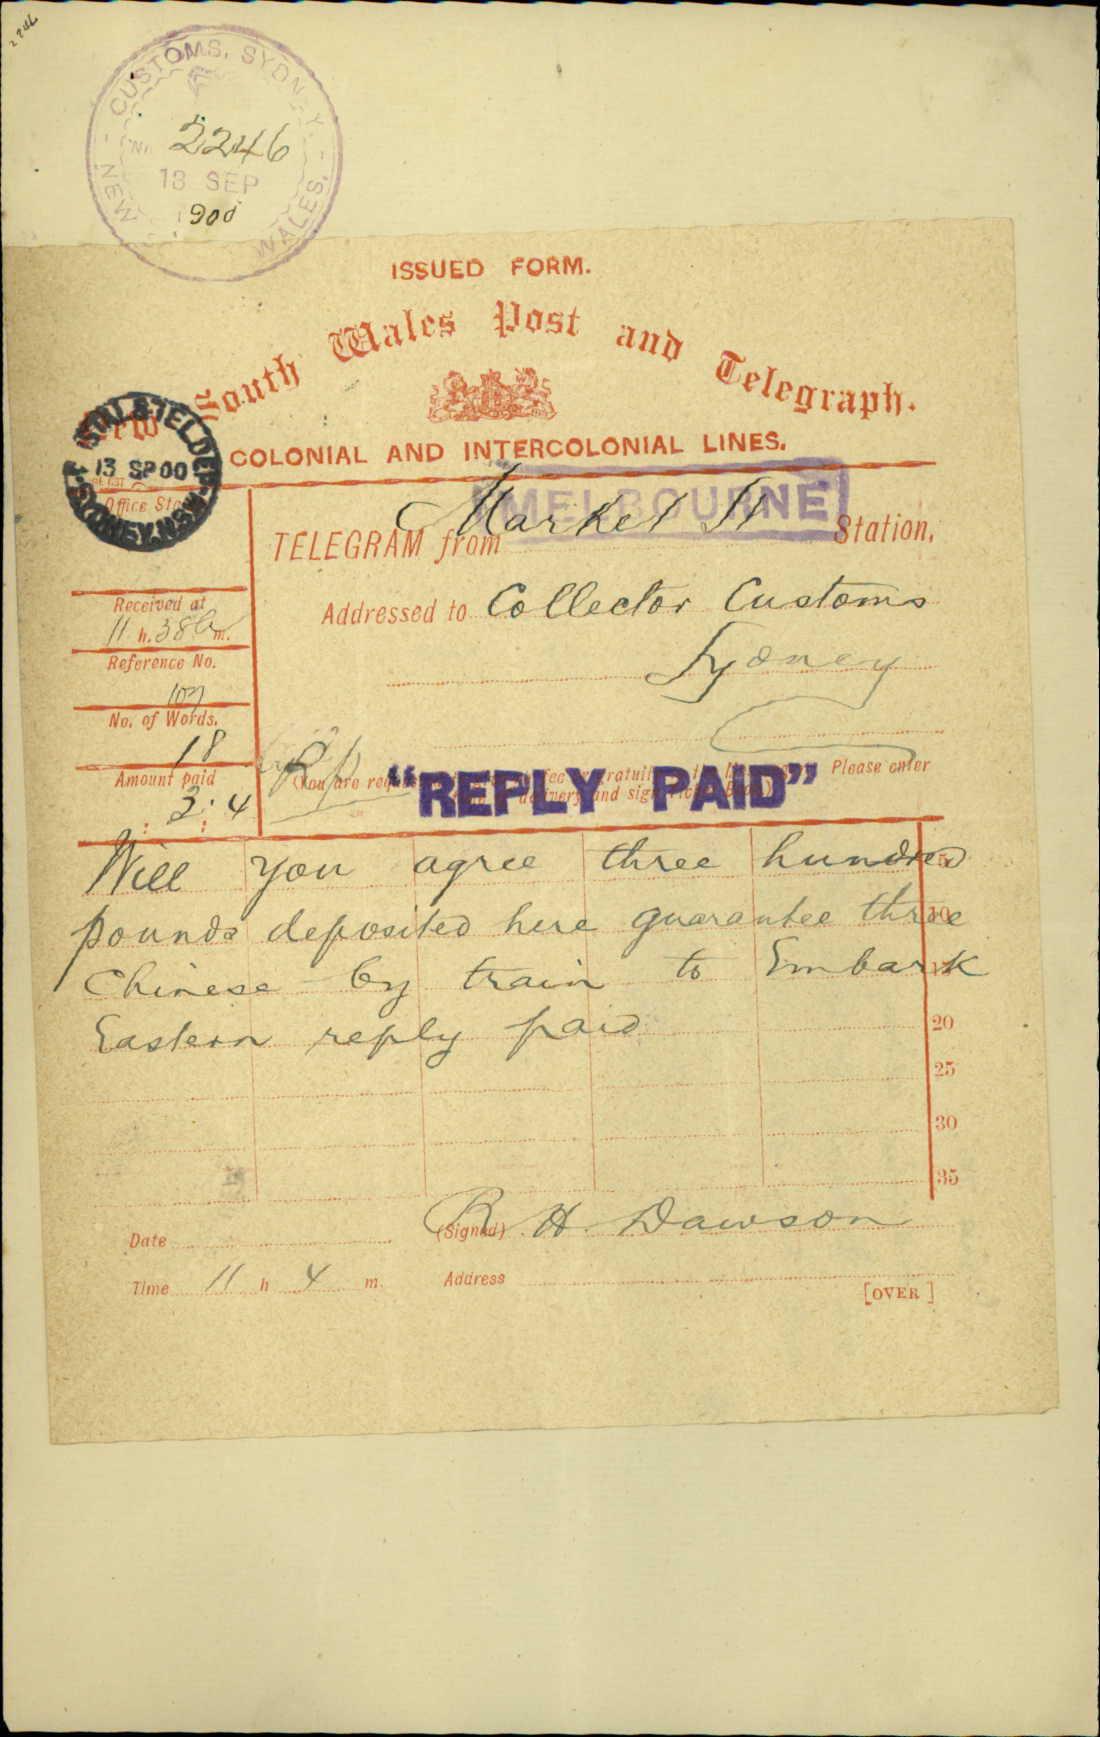 2246
CUSTOMS, SYDNEY.
NEW WALES.
2246
13 SEP
1900
ISSUED FORM.
South Wales Post and Telegraph.
COLONIAL AND INTERCOLONIAL LINES.
13 SP 00
SYDNEY N.S.W
Office Sta
MELBOURNE
TELEGRAM from Market St Station.
Received at
11 h. 38 m.
Addressed to Collector Customs
Sydney
Reference No.
No. of Words.
18
Amount paid
3:4
Rp
You are Please enter
delivery and sign
"REPLY PAID"
Will you agree three hundred
pounds deposited here guarantee three 10
Chinese by train to Embark
Eastern reply paid 20
25
30
35
(Signed) R. H. Dawson
Date
Time 11 h 4 m.
Address
[OVER]